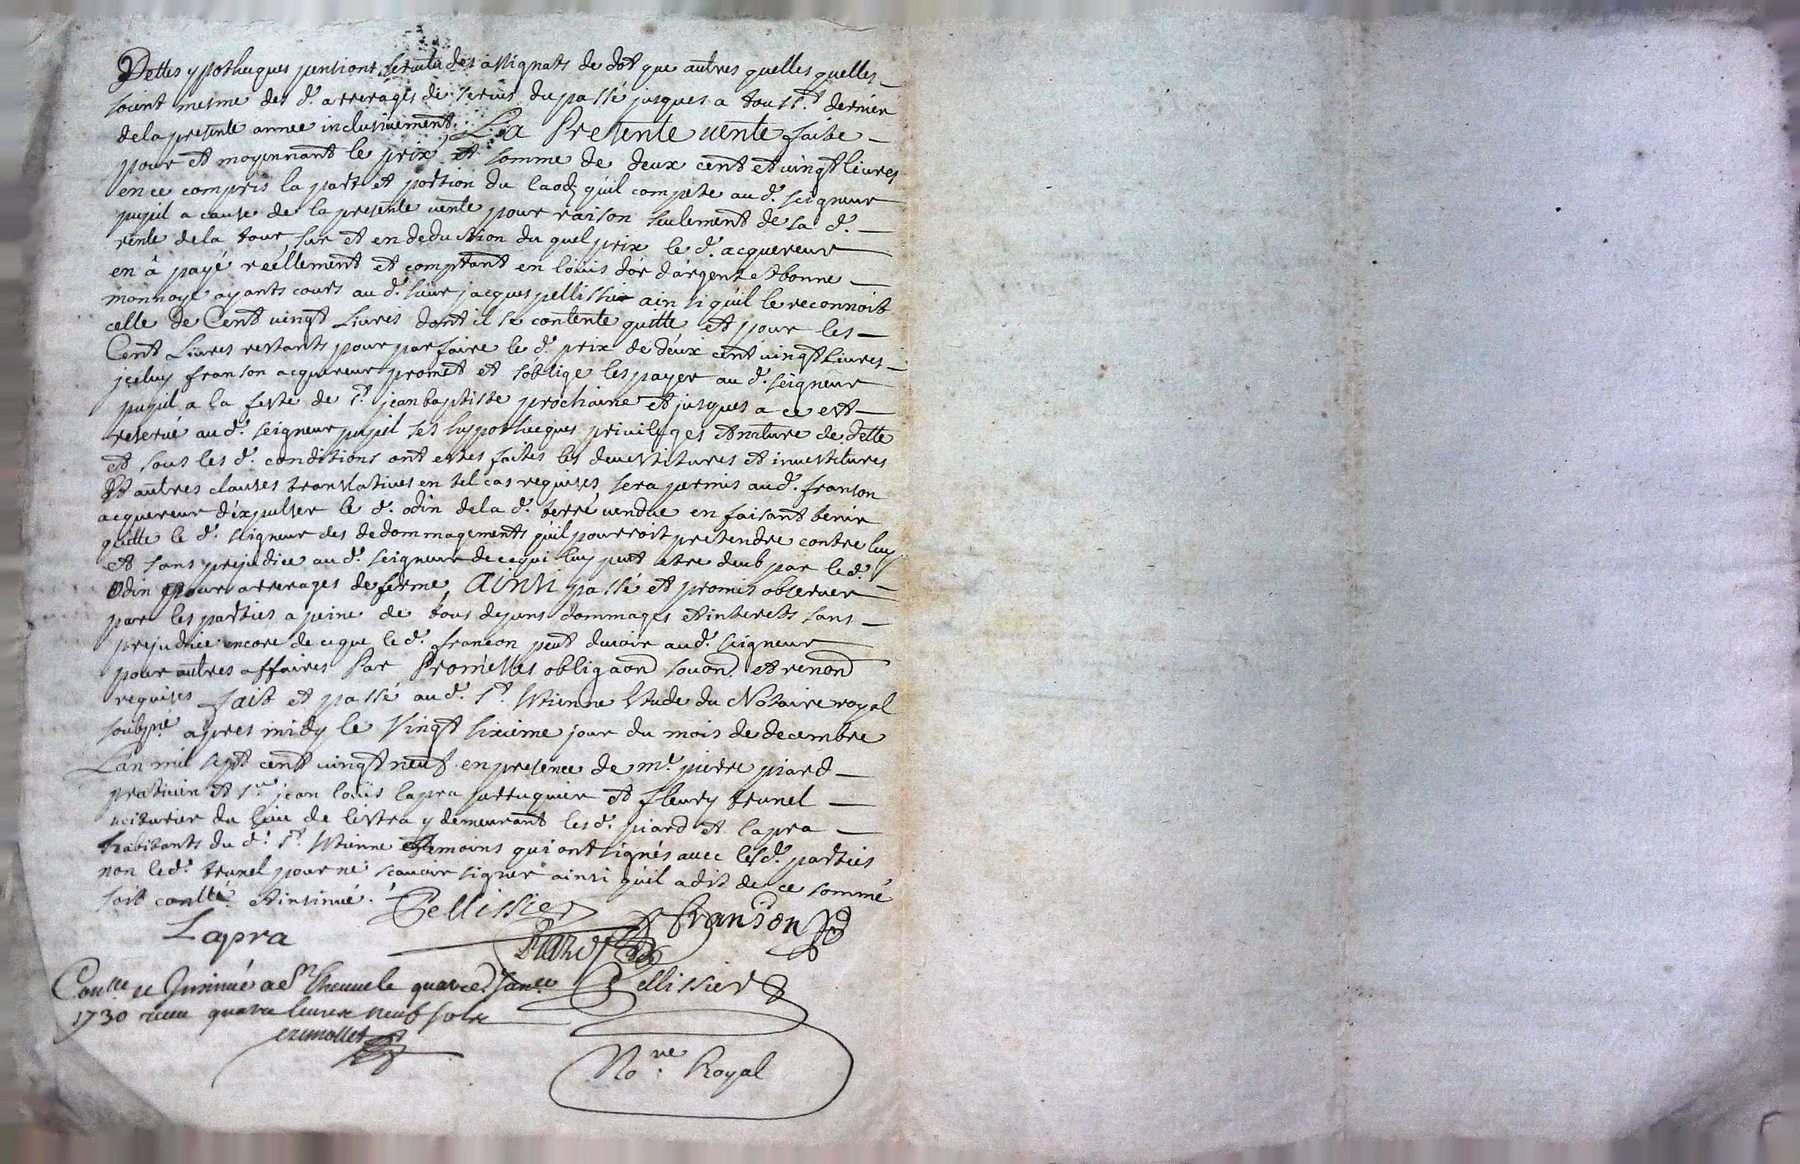 Dettes ypotheques pentions servitudes assignats de dot que autres quelles quelles
soient mesme des d. arrerages de servis du passé jusques a touss.t dernier
de la presente annee inclusivement, La Presente vente faite
pour et moyennant le prix et somme de deux cent et vingt livres
en ce compris la part et portion du laod qu'il compete au d. seigneur
pupil a cause de la presente vente pour raison seulement de sa d.
rente de la tour, sur et en deduction du quel prix le d. acquereur
en à payé reellement et comptant en louis d'or d'argent et bonne
monnoye ayants cours au d. sieur jacques pellissier ainsi qu'il le reconnoit
celle de Cent vingt Livres dont il se contente quitte et pour les
Cent Livres restants pour parfaire le d. prix de deux cent vingt livres
jceluy franson acquereur promet et s'oblige les payer au d. seigneur
pupil a la feste de s.t jean baptiste prochaine et jusques a ce est
reserve au d. seigneur pupil ses hypotheques privileges et nature de dette
et sous les d. conditions ont estes faites les devestitures et investitures
Et autres clauses translatives en tel cas requises sera permis au d. franson
acquereur d'expulser le d. odin de la d. terre vendue en faisant tenir
quitte le d. seigneur des dedommagements qu'il pourroit pretendre contre luy
et sans prejudice au d. seigneur de ce qui luy peut etre deub par le d.
Odin pour arrerages de ferme, Ainsi passé et promis observer
par les parties a peine de tous depens dommages et interests sans
prejudice encore de ce que le d. franson peut devoir au d. seigneur
pour autres affaires Par Promesses obligaon soûon et renon
requises fait et passé au d. s.t Estienne Etude du Notaire royal
soubsne apres midy le Vingt sixieme jour du mois de decembre
L'an mil sept cent vingt neuf en presence de m.e pierre piard
praticien et s.r jean louis lapra perruquier et fleury brunel
voiturier du lieu de lestra y demeurant les d. piard et lapra
habitants du d. s.t Estienne tesmoins qui ont signés avec les d. parties
non le d. brunel pour ne scavoir signer ainsi qu'il a dit de ce sommé
soit conllé et insinué.
Pellissier
franson
Lapra
Piard
Conlle et Jnsinué a St Etienne le quatre janer
Pellissier
1730 receu quatre livres neuf sols
No.re Royal